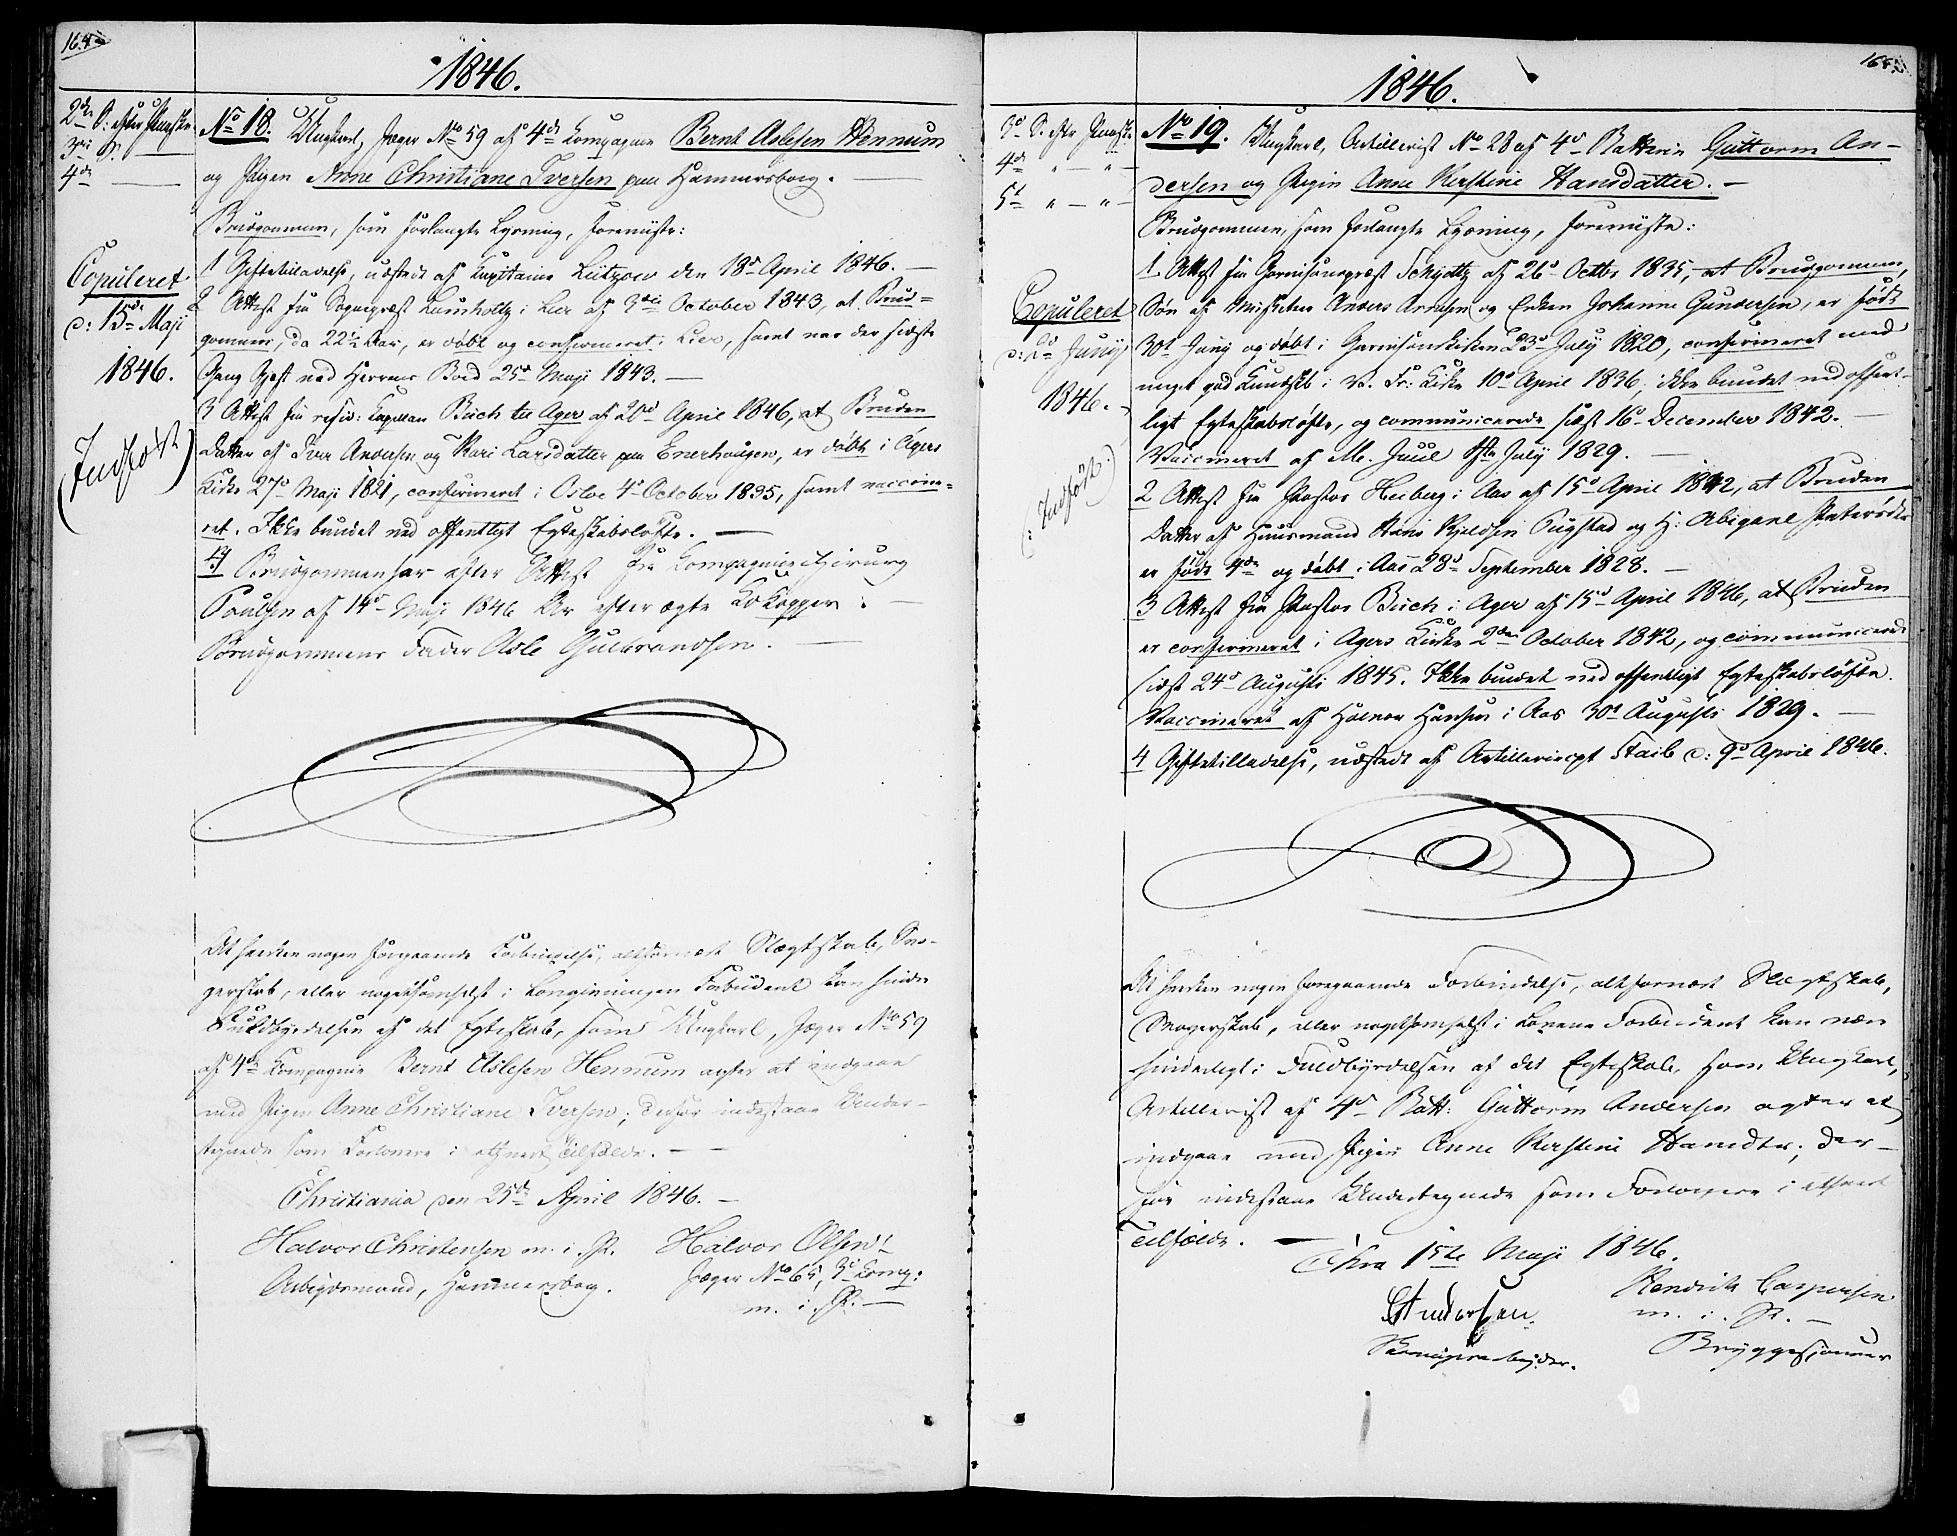 164
1846.
2den S: efter Paaske
3die S. —
4de —
No 18. Ungkarl, Jæger No 59 af 4de Kompagnie Bernt Aslesen Hennum
og Pigen Anne Christiane Iversen paa Hammersborg. —
Brudgommen, som forlangte Lysning, foreviiste:
Copuleret
d: 15de Maji
1846.
(Indført)
1 Giftetilladelse, udstedt af Kapitaine Lützow den 18de April 1846. —
2 Attest fra Sognepræst Lumholtz i Lier af 3die October 1843, at Brud=
gommen, da 22½ Aar, er døbt og confirmeret i Lier, samt var der sidste
Gang Gjest ved Herrens Bord 25de Maji 1843. —
3 Attest fra resid: Kapellan Buch til Ager af 20de April 1846, at Bruden
Datter af Iver Andersen og Kari Larsdatter paa Enerhaugen, er døbt i Agers
Kirke 27de Maji 1821, confirmeret i Oslo 4de October 1835, samt vaccine=
ret. Ikke bundet ved offentligt Egteskabsløfte. —
4) Brudgommen har efter Attest fra Kompagniechirurg
Poulsen af 14de Maji 1846 Ar efter ægte Kokopper. —
Brudgommens Fader Asle Gulbrandsen. —
At hverken nogen foregaaende Forbindelse, altfornært Slægtskab, Svo-
gerskab, eller nogetsomhelst i Lovgivningen Forbudent kan hindre
Fuldbyrdelsen af det Egteskab, som Ungkarl, Jæger No 59
af 4de Kompagnie Bernt Aslesen Hennum agter at indgaae
med Pigen Anne Christiane Iversen; derfor indestaae Under-
tegnede som Forlovere i ethvert Tilfælde. —
Christiania den 25de April 1846. —
Halvor Christensen m. i. P.
Arbeidsmand, Hammersborg.
Halvor Olsen
Jæger No 65, 3d Komp:
m. i. P. —
165
1846.
3d S. efter Paaske
4de " — " —
5te " — " —
No 19. Ungkarl, Artillerist No 28 af 4de Batterie Guttorm An-
dersen og Pigen Anne Kirstine Hansdatter. —
Brudgommen, som forlangte Lysning, foreviiste:
Copuleret
d: 2de Junij
1846.
(: Indført.)
1 Attest fra Garnisonspræst Schjøtz af 26de Octbr 1835, at Brudgommen,
Søn af Anders Arnesen og Enken Johanne Gundersen, er født
30te Juny og døbt i Garnisonskirken 23de July 1820, confirmeret med
meget god Kundskb i V. Fr: Kirke 10de April 1836, ikke bundet ved offent-
ligt Egteskabsløfte, og communicerede sidst 16de December 1842. —
Vaccineret af M. Juul July 1829. —
2 Attest fra Pastor Heiberg i Aas af 15de April 1842, at Bruden
Datter af Huusmand Hans Kjeldsen Pugstad og H: Abigael Pedersdtr
er født 4de og døbt i Aas 28de September 1828. —
3 Attest fra Pastor Buch i Ager af 15de April 1846, at Bruden
er confirmeret i Agers Kirke 2den October 1842, og communicerede
sidst 24de Augusti 1845. Ikke bundet ved offentligt Egteskabsløfte.
Vaccineret af Halvor Hansen i Aas 30te Augusti 1829. —
4 Giftetilladelse, udstedt af Artilleriecpt Staib d: 9de April 1846.
At hverken nogen foregaaende Forbindelse, altfornært Slægtskab,
Svogerskab, eller nogetsomhelst i Lovene Forbudent kan være
hinderligt i Fuldbyrdelsen af det Egteskab, som Ungkarl,
Artillerist af 4de Batt: Guttorm Andersen agter at
indgaae med Pigen Anne Kirstine Hansdtr; der-
for indestaae Undertegnede som Forlovere i ethvert
Tilfælde. —
Chra 1ste Maji 1846.
Andersen.
Hendrik Caspersen
m. i. P. —
Bryggesjouer